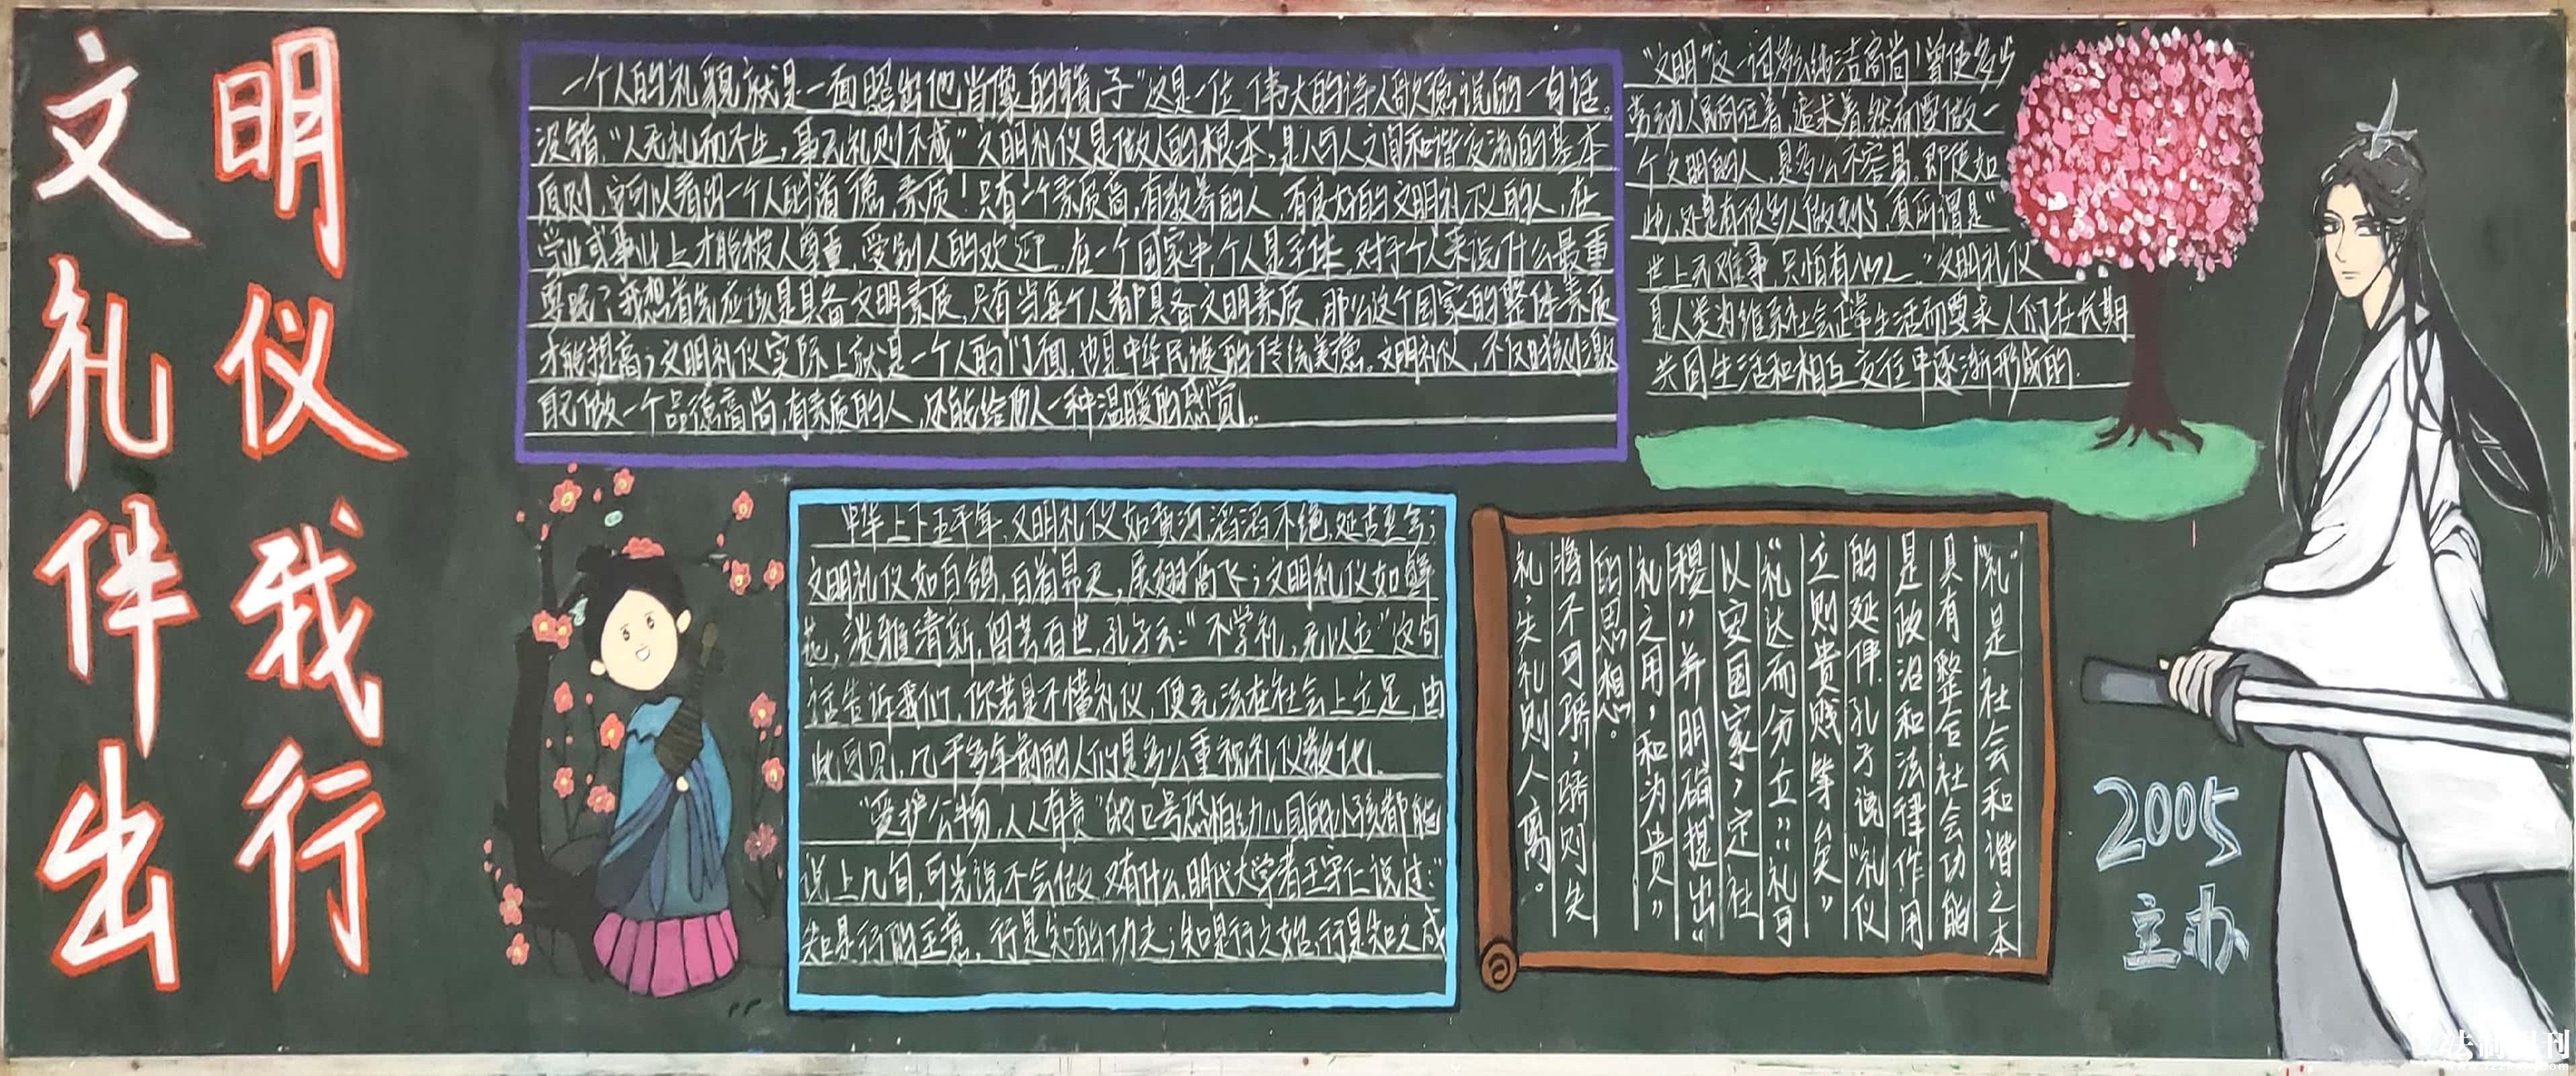 文明
礼仪
伴我
出行
一个人的礼貌就是一面照出他肖像的镜子"这是一位伟大的诗人歌德说的一句话。
没错,"人无礼和不生,事无礼则不成"文明礼仪是做人的根本,是人与人之间和谐交流的基本
原则,它可以看出一个人的道德,素质!只有一个素质高,有教养的人,有良好的文明礼仪的人,在
学业或事业上才能被人尊重,受别人的欢迎.在一个国家中,个人是主体,对于个人来说什么最重
要呢?我想首先应该是具备文明素质,只有当每个人都具备文明素质,那么这个国家的整体素质
才能提高;文明礼仪实际上就是一个人的门面,也是中华民族的传统美德。文明礼仪,不仅时刻激
自己做一个品德高尚,有素质的人,还能给他人一种温暖的感觉。
"文明"这一词多么纯洁高尚!曾使多少
劳动人民向往着,追求着.然而要做一
个文明的人,是多么不容易。即使如
此,还是有很多人做到了,真所谓是"
世上无难事,只怕有心人。"文明礼仪
是人类为维系社会正常生活而要求人们在长期
共同生活和相互交往中逐渐形成的.
中华上下五千年,文明礼仪如黄河,滔滔不绝,延古至今;
文明礼仪如白鸽,自首昂天,展翅高飞;文明礼仪如鲜
花,淡雅清新,留芳百世,孔子云:"不学礼,无以立"这句
话告诉我们,你若是不懂礼仪,便无法在社会上立足,由
此可见,几千多年前的人们是多么重视礼仪教化.
"爱护公物,人人有责"的口号恐怕幼儿园的小孩都能
说上几句,可光说不会做又有什么,明代大学者王守仁说过:"
知是行的主意,行是知的功夫;知是行之始,行是知之成
"礼"是社会和谐之本
具有整合社会功能
是政治和法律作用
的延伸.孔子说"礼仪
立则贵贱等矣"
"礼达而分立::礼可
以安国家,定社
稷"并明确提出"
礼之用,和为贵"
的思想。
将不可骄,骄则失
礼,失礼则人离。
2005
主办